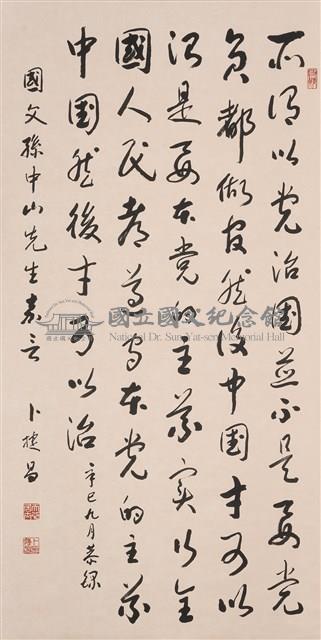 所謂以党治國並不是要党
員都做官然後中国才可以
治是要本党的主義實行全
國人民都遵守本党的主義
中国然後才可以治 辛巳九月恭錄
國父孫中山先生嘉言 卜揵昌
國立國父紀念館
National Dr. Sun Yat-sen Memorial Hall